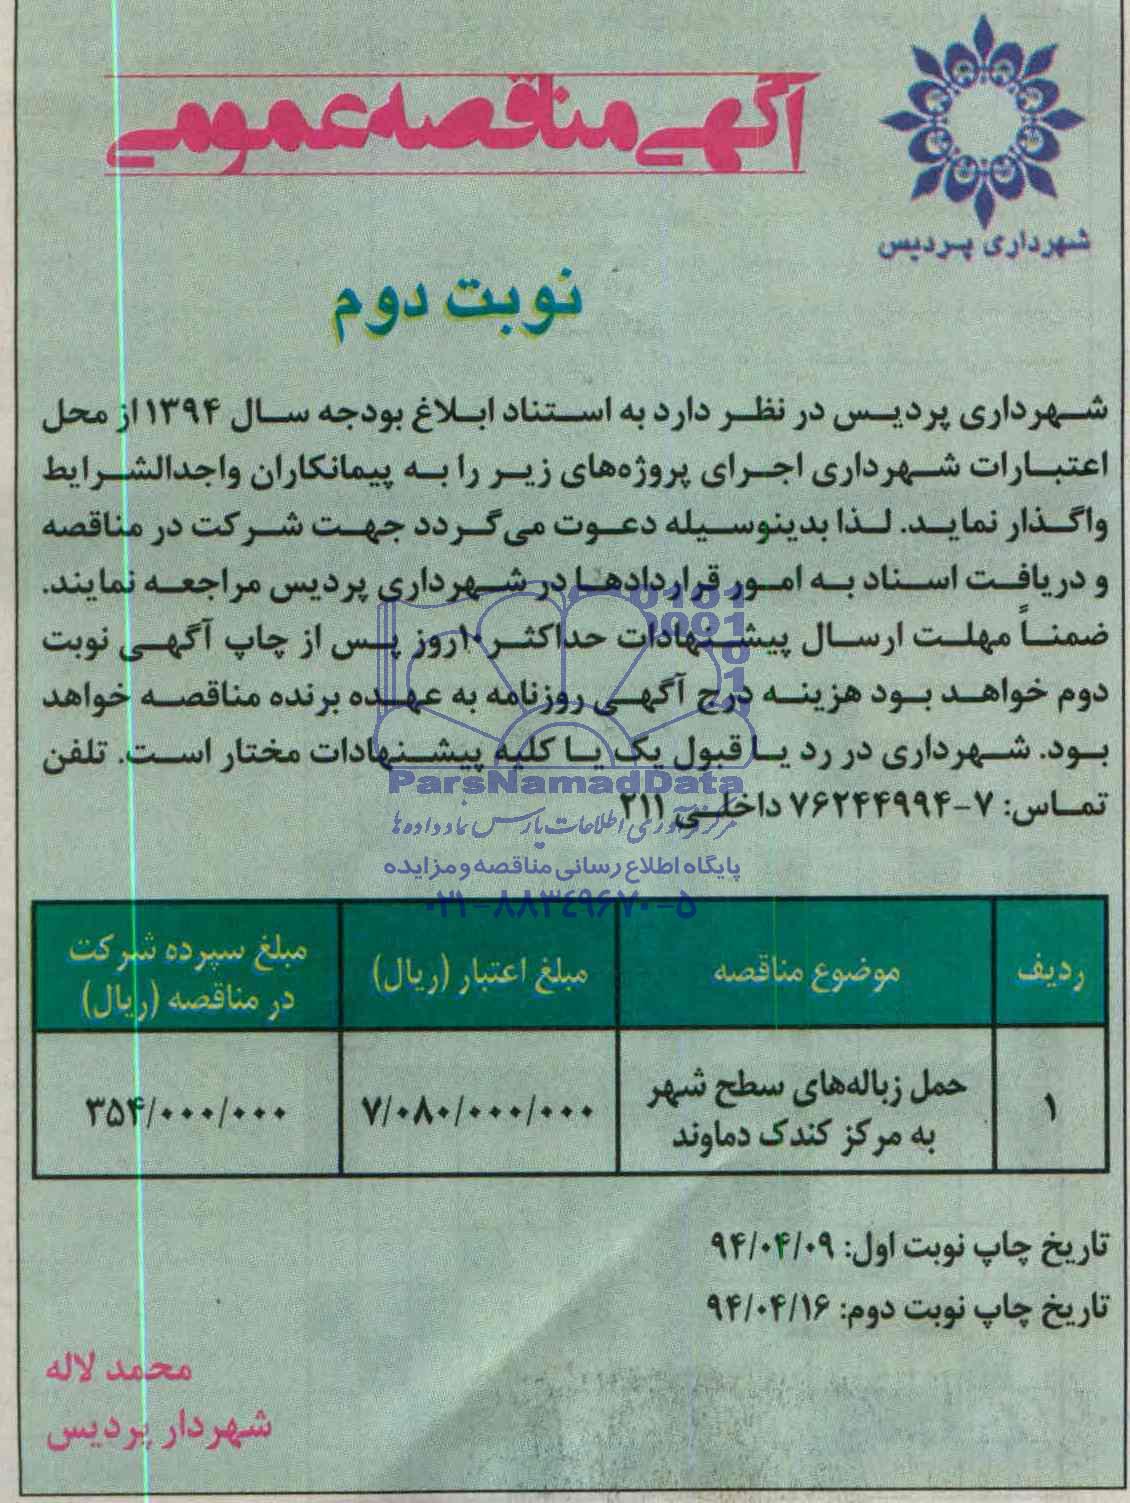 آگهی مناقصه عمومی
شهرداری پردیس
نوبت دوم
شهرداری پردیس در نظر دارد به استناد ابلاغ بودجه سال ۱۳۹۴ از محل
اعتبارات شهرداری اجرای پروژه‌های زیر را به پیمانکاران واجدالشرایط
واگذار نماید. لذا بدینوسیله دعوت می‌گردد جهت شرکت در مناقصه
و دریافت اسناد به امور قراردادها در شهرداری پردیس مراجعه نمایند.
ضمناً مهلت ارسال پیشنهادات حداکثر ۱۰روز پس از چاپ آگهی نوبت
دوم خواهد بود هزینه درج آگهی روزنامه به عهده برنده مناقصه خواهد
بود. شهرداری در رد یا قبول یک یا کلیه پیشنهادات مختار است. تلفن
تماس: ۷-۷۶۲۴۴۹۹۴ داخلی ۲۱۱
ParsNamadData
مرکز فرآوری اطلاعات پارس نماد داده ها
پایگاه اطلاع رسانی مناقصه و مزایده
۰۲۱-۸۸۳۴۹۶۷۰-۵
ردیف موضوع مناقصه مبلغ اعتبار (ریال) مبلغ سپرده شرکت
در مناقصه (ریال)
۱ حمل زباله‌های سطح شهر
به مرکز کندک دماوند
۷/۰۸۰/۰۰۰/۰۰۰ ۳۵۴/۰۰۰/۰۰۰
تاریخ چاپ نوبت اول: ۹۴/۰۴/۰۹
تاریخ چاپ نوبت دوم: ۹۴/۰۴/۱۶
محمد لاله
شهردار پردیس